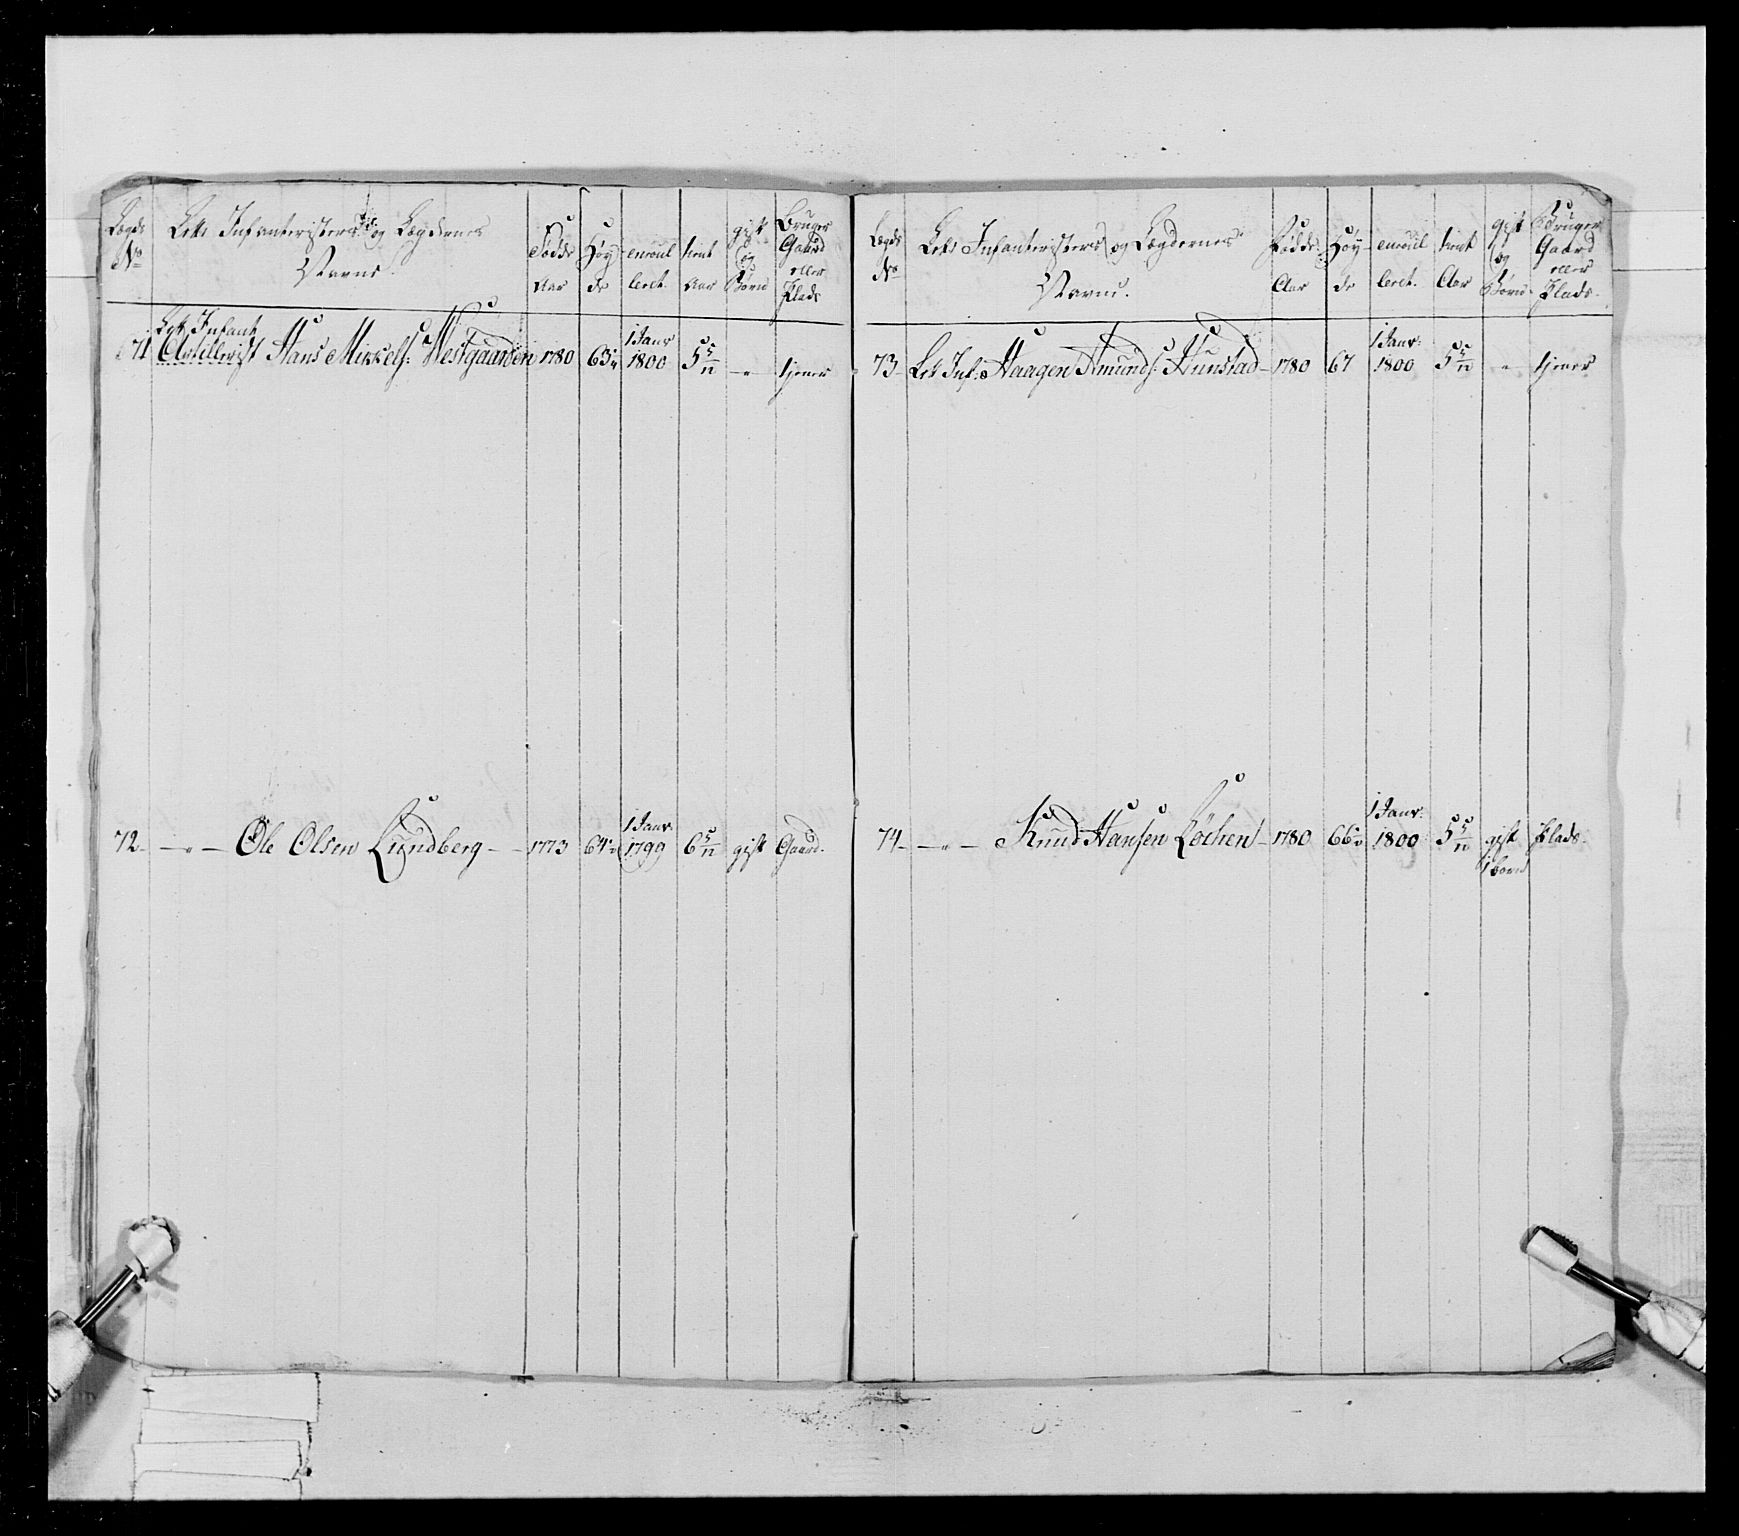 Lægds No
Lette Infanteristers og Lægdernes Navne.
Fødde Aar
Høyde
enroulleret.
tient Aar
gift og Børn
Bruger Gaard eller Plads
71
Let Infant
Artillerist Hans Mikkels: Westgaarden 1780 63 1 Janv 1800 5 5/12 - " tjener
72 - " - Ole Olsen Lundberg - 1773 64 1 Janv: 1799 6 5/12 gift Gaard.
Lægds No
Lette Infanteristers og Lægdernes Navne.
Fødde Aar
Høyde
enroulleret.
tient Aar
gift og Børn
Bruger Gaard eller Plads.
73 Let Inf: Haagen Amunds: Hunstad - 1780 67 1 Janv: 1800 5 5/12 " tjener
74 - " - Knud Hansen Løchen - 1780 66 1 Janv: 1800 5 5/12 gift 1 barn Plads.